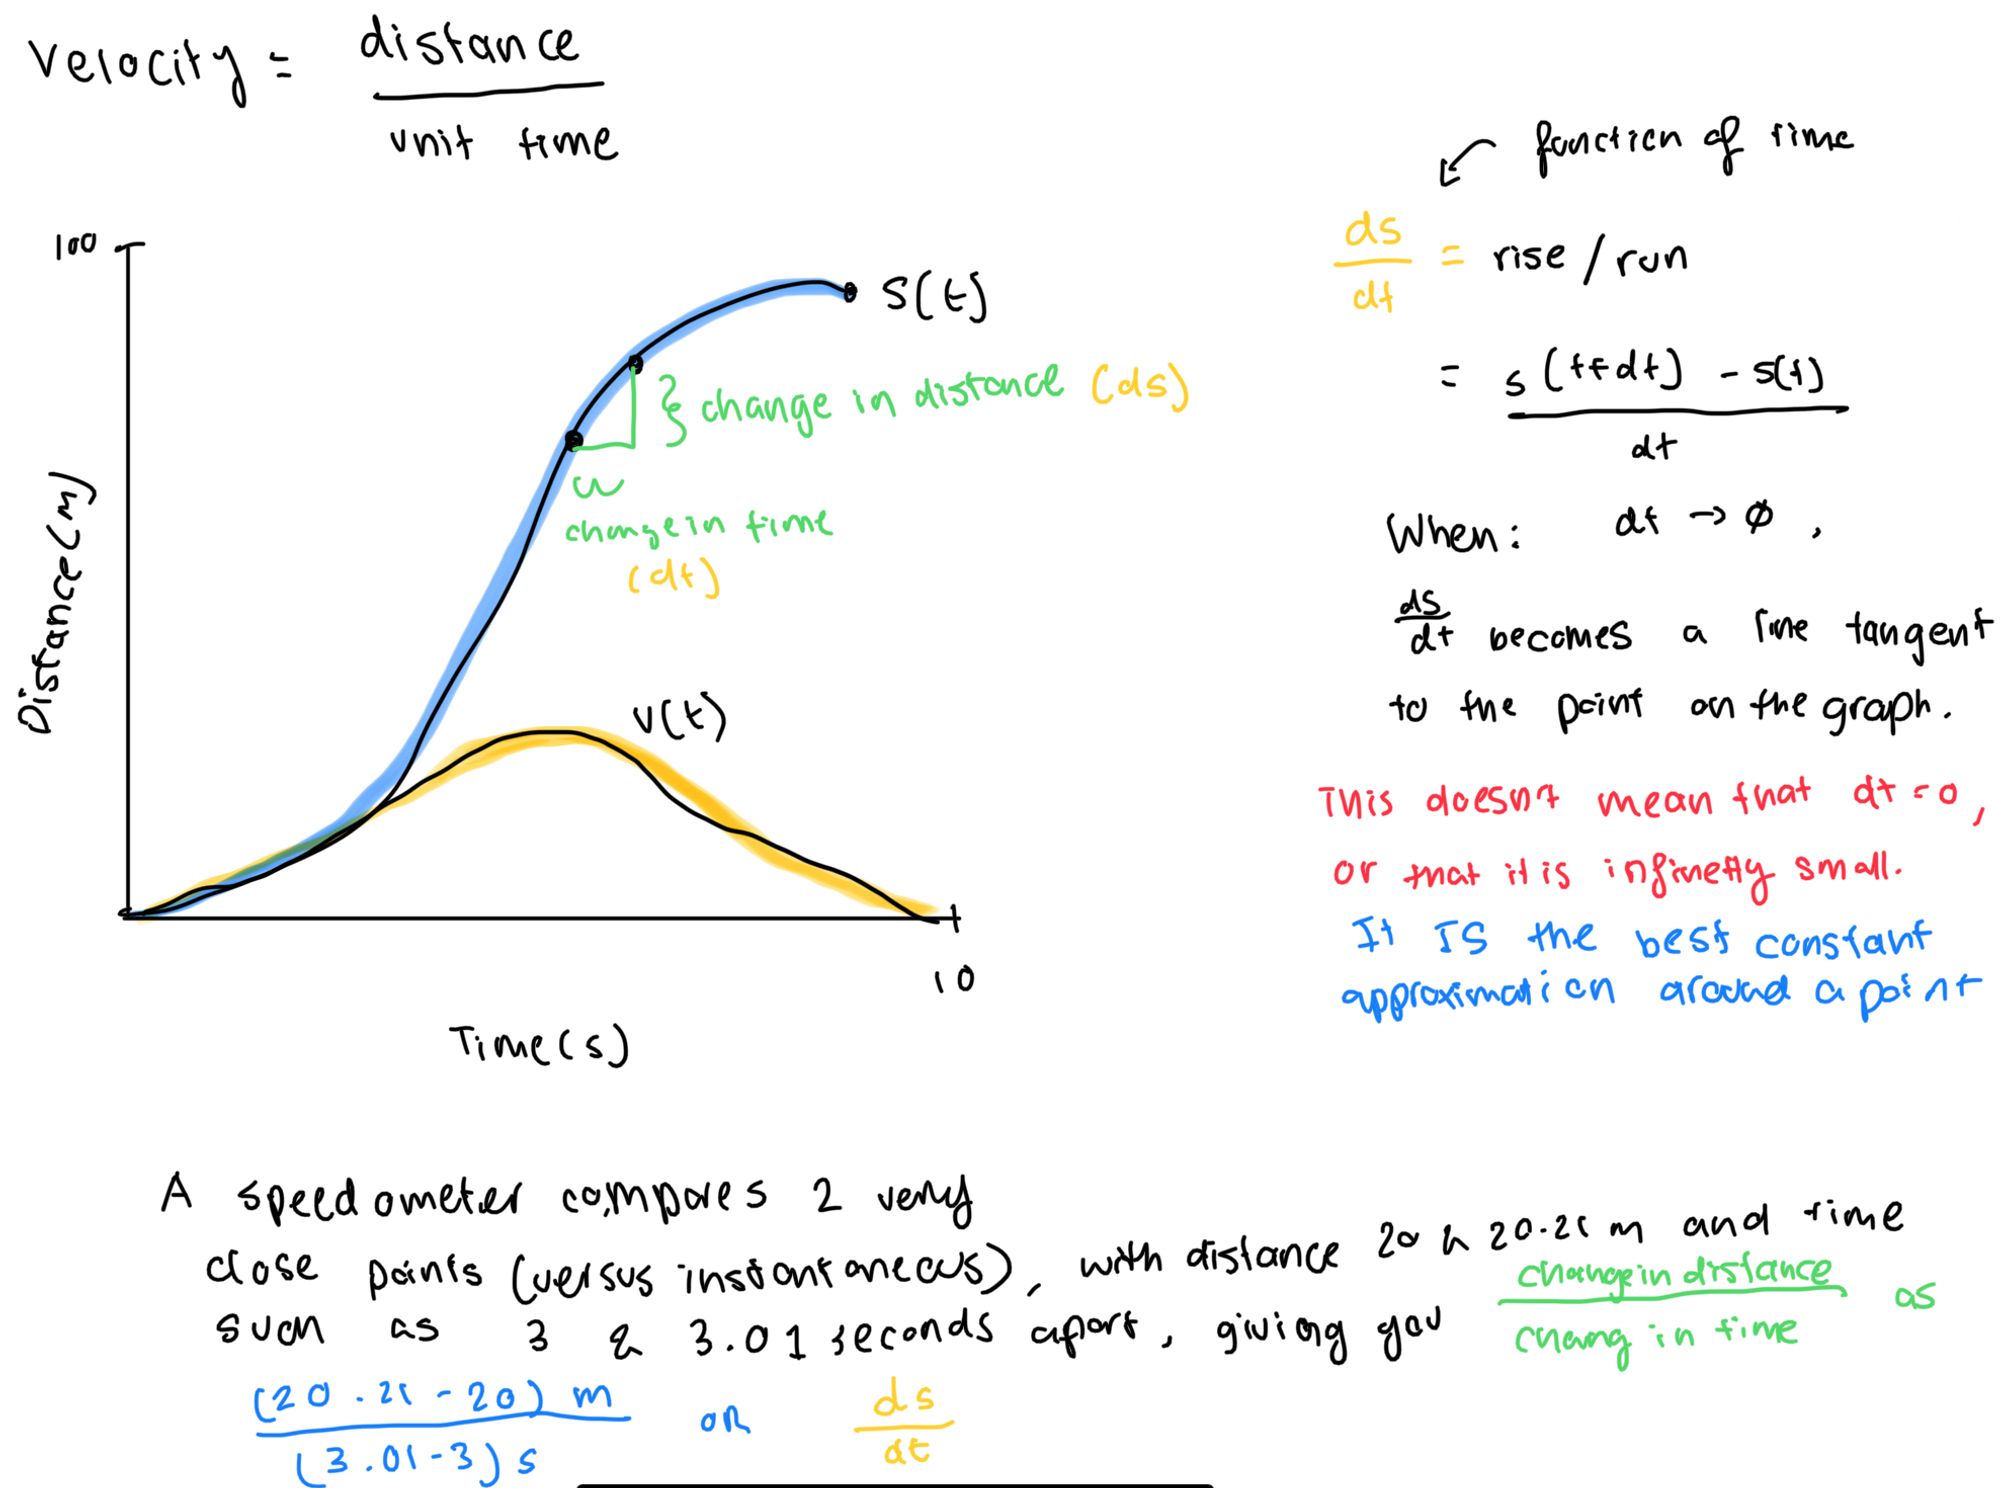 velocity = distance
unit time
100
S(t)
} change in distance (ds)
change in time
(dt)
V(t)
Distance (m)
10
Time (s)
function of time
ds
dt
= rise / run
= s (t+dt) - s(t)
dt
When: dt → ∅ ,
ds
dt becomes a line tangent
to the point on the graph.
This doesn't mean that dt = 0,
or that it is infinetly small.
It IS the best constant
approximation around a point
A speedometer compares 2 very
close points (versus instantaneous), with distance 20 & 20.21 m and time
such as 3 & 3.01 seconds apart, giving you change in distance as
chang in time
(20.21 - 20) m
(3.01 - 3) s
OR
ds
dt